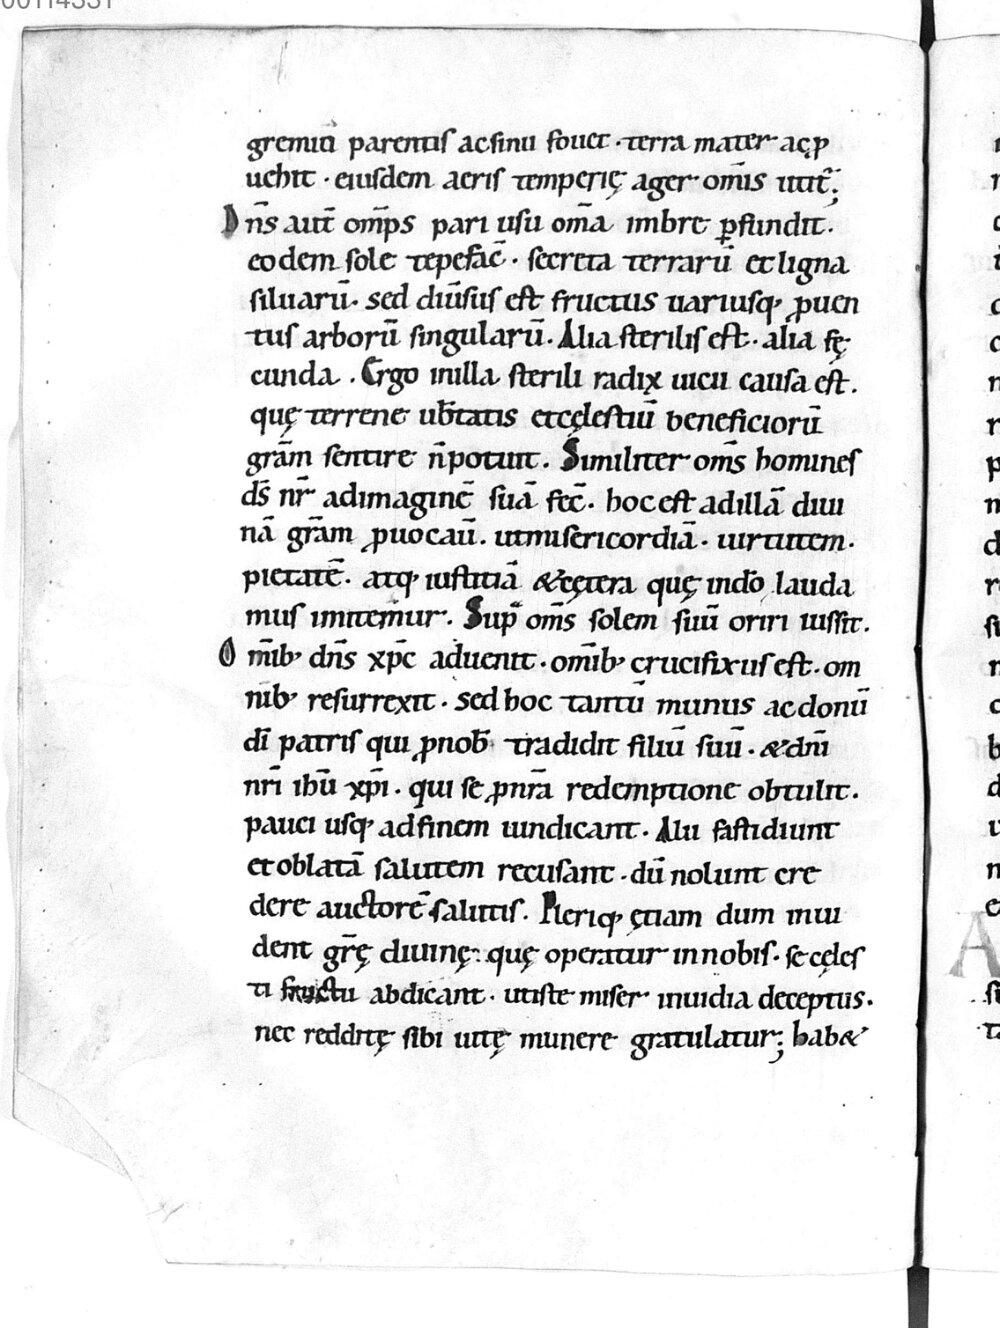 gremiũ parentis ac sinu fouet · terra mater ac ꝓ
uehit · eiusdem aeris temperię ager om̃is utit̃;
Dñs aut̃ om̃ps pari usu om̃a imbre ꝑfundit.
eodem sole tepefac̃ · secreta terrarũ et ligna
siluarũ · sed diũsus est fructus uariusq; ꝓuen
tus arborũ singularũ. Alia sterilis est · alia fę
cunda. Ergo in illa sterili radix uicii causa est.
quę terrene ub̃tatis et cęlestiũ beneficiorũ
grãm sentire ñ potuit. Similiter om̃s homines
ds̃ nr̃ ad imaginẽ suã fec̃. hoc est ad illã diui
nã grãm ꝓuocaũ. ut misericordiã · uirtutem ·
pietatẽ · atq; iustitiã &cętera quę in dõ lauda
mus imitem̃ur. Sup̃ om̃s solem suũ oriri iussit.
Om̃ib; dñs xp̃c aduenit · om̃ib; crucifixus est · om
nib; resurrexit · sed hoc tantũ munus ac donũ
dĩ patris qui ꝓ nob̃ tradidit filiũ suũ · & dñi
nr̃i ihũ xp̃i · qui se ꝓ nr̃a redemptione obtulit.
pauci usq; ad finem uindicant. Alii fastidiunt
et oblatã salutem recusant · dũ nolunt cre
dere auctorẽ salutis. Pleriq; ętiam dum inui
dent gr̃ę diuinę: quę operatur in nobis · se cęles
ti fructu abdicant · ut iste miser inuidia deceptus.
nec redditę sibi uitę munere gratulatur; hab&